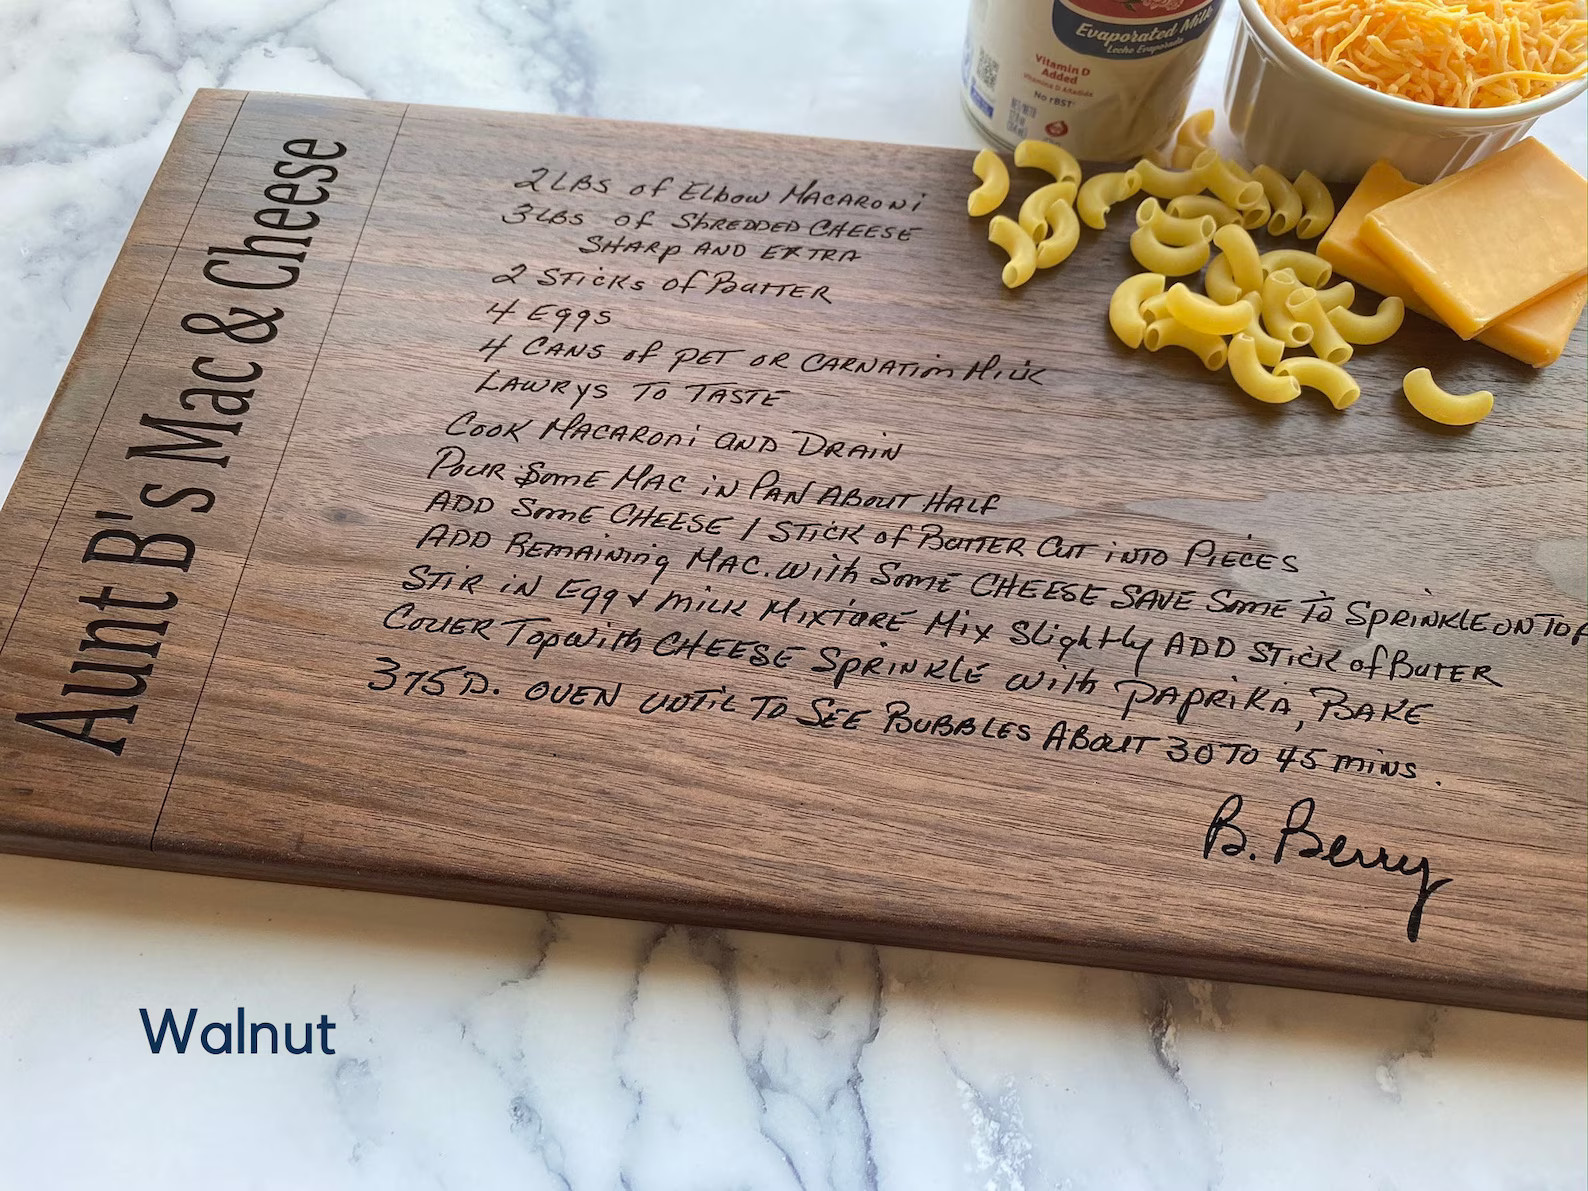 Evaporated Milk
Leche Evaporada
Vitamin D
Added
Vitamina D Añadida
No rBST
Aunt B's Mac & Cheese
2 LBS of Elbow MACARONi
3 LBS of SHREDDED CHEESE
SHARP AND EXTRA
2 STicKs of BUTTER
4 Eggs
4 CANS of PET OR CARNATiON MiLK
LAWRYS TO TASTE
COOK MACARONi AND DRAiN
POUR SOME MAC iN PAN ABOUT HALF
ADD SOME CHEESE 1 STiCK of BUTTER CUT iNTO PiECES
ADD REMAiNiNg MAC. With SOME CHEESE SAVE SOME TO SPRiNKLE ON TOP
STiR iN Egg & MiLK MiXTURE MiX Slightly ADD STiCK of BUTER
COVER Top With CHEESE SPRiNKLE With PAPRiKA, BAKE
375 D. OVEN UNTiL TO SEE BUBBLES ABOUT 30 TO 45 MiNS.
B. Berry
Walnut